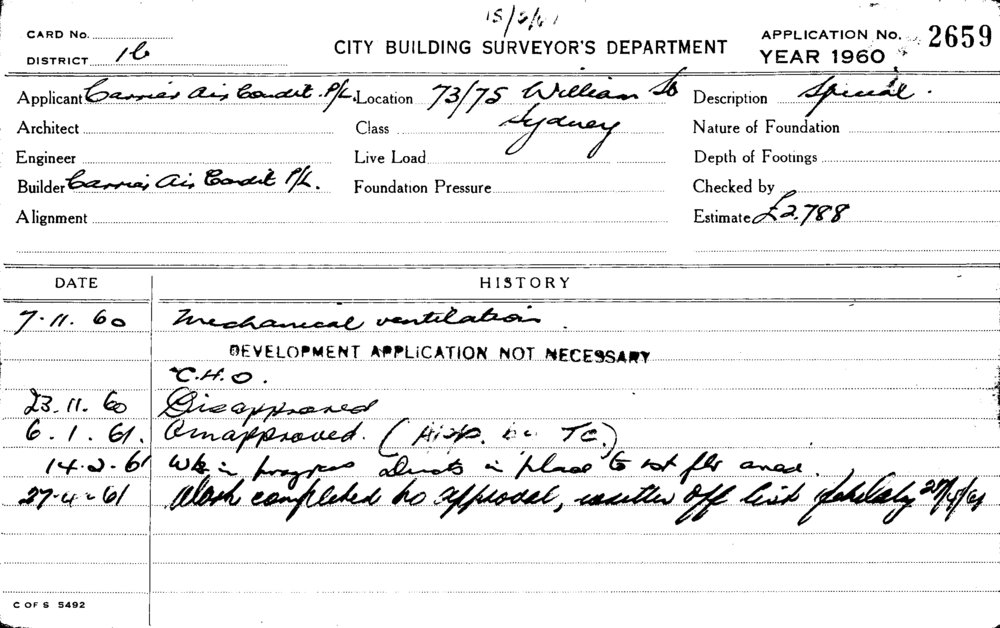 15/3/61
CARD No.
DISTRICT 16
CITY BUILDING SURVEYOR'S DEPARTMENT
APPLICATION No. 2659
YEAR 1960
Applicant Carrier Air Condit. P/L. Location 73/75 William St Description Special.
Sydney
Architect Class Nature of Foundation
Engineer Live Load Depth of Footings
Builder Carrier Air Condit P/L. Foundation Pressure Checked by
Alignment Estimate £2,788
DATE HISTORY
7.11.60 Mechanical ventilation.
DEVELOPMENT APPLICATION NOT NECESSARY
C.H.O.
23.11.60 Disapproved
6.1.61. approved. (
14.2.61 Wk in progress Ducts in place to 1st flr area.
27.4.61 Work completed no approval, written off list 27/4/61
C OF S 5492